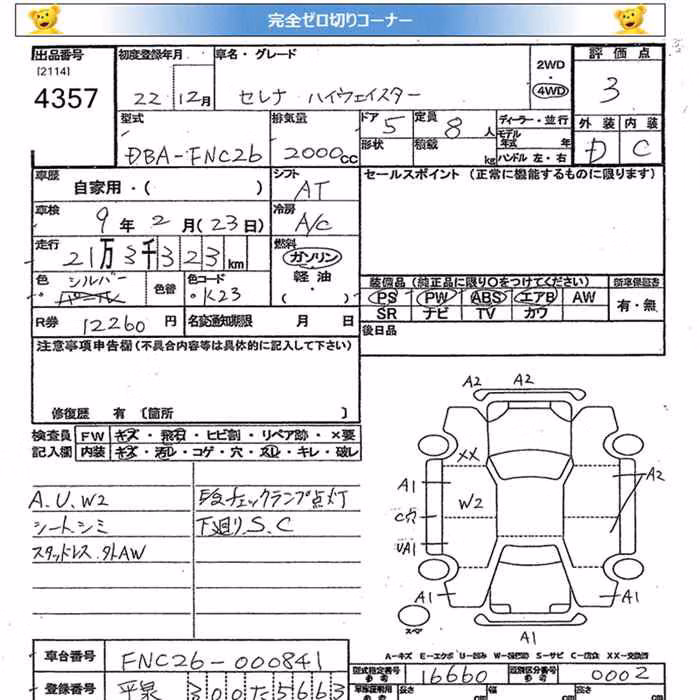 完全ゼロ切りコーナー
出品番号
[2114]
4357
初度登録年月
22 12月
車名・グレード
セレナ ハイウェイスター
2WD
・
4WD
評価点
3
外装 内装
D C
型式
DBA-FNC26
排気量
2000cc
ドア 5
形状
定員 8人
積載 kg
ディーラー・並行
モデル
年式 年
ハンドル 左・右
車歴
自家用・( )
シフト
AT
セールスポイント (正常に機能するものに限ります)
車検
9年2月(23日)
冷房
A/C
走行
21万3千323km
燃料
ガソリン
軽油
・( )
色
シルバー
色替
色コード
・K23
装備品 (純正品に限り○をつけてください)
PS PW ABS エアB AW
SR ナビ TV カワ
新車保証書
有・無
R券 12260円
名変通知期限 月 日
後日品
注意事項申告欄 (不具合内容等は具体的に記入して下さい)
修復歴 有 〔箇所 〕
検査員 FW キズ・飛石・ヒビ割・リペア跡・×要
記入欄 内装 キズ・汚レ・コゲ・穴・スレ・キレ・破レ
A.U.W2
シートシミ
スタッドレス.外AW
チェックランプ点灯
下廻りS.C
A2 A2
XX
A1 W2 A2
C穴
UA1
A1 A1
スペア
A1
A-キズ E-エクボ U-凹み W-補修跡 S-サビ C-腐食 XX-交換済
車台番号 FNC26-000841
型式指定番号
参考
16660
類別区分番号
参考
0002
登録番号 300 た 5663
長さ
幅
高さ